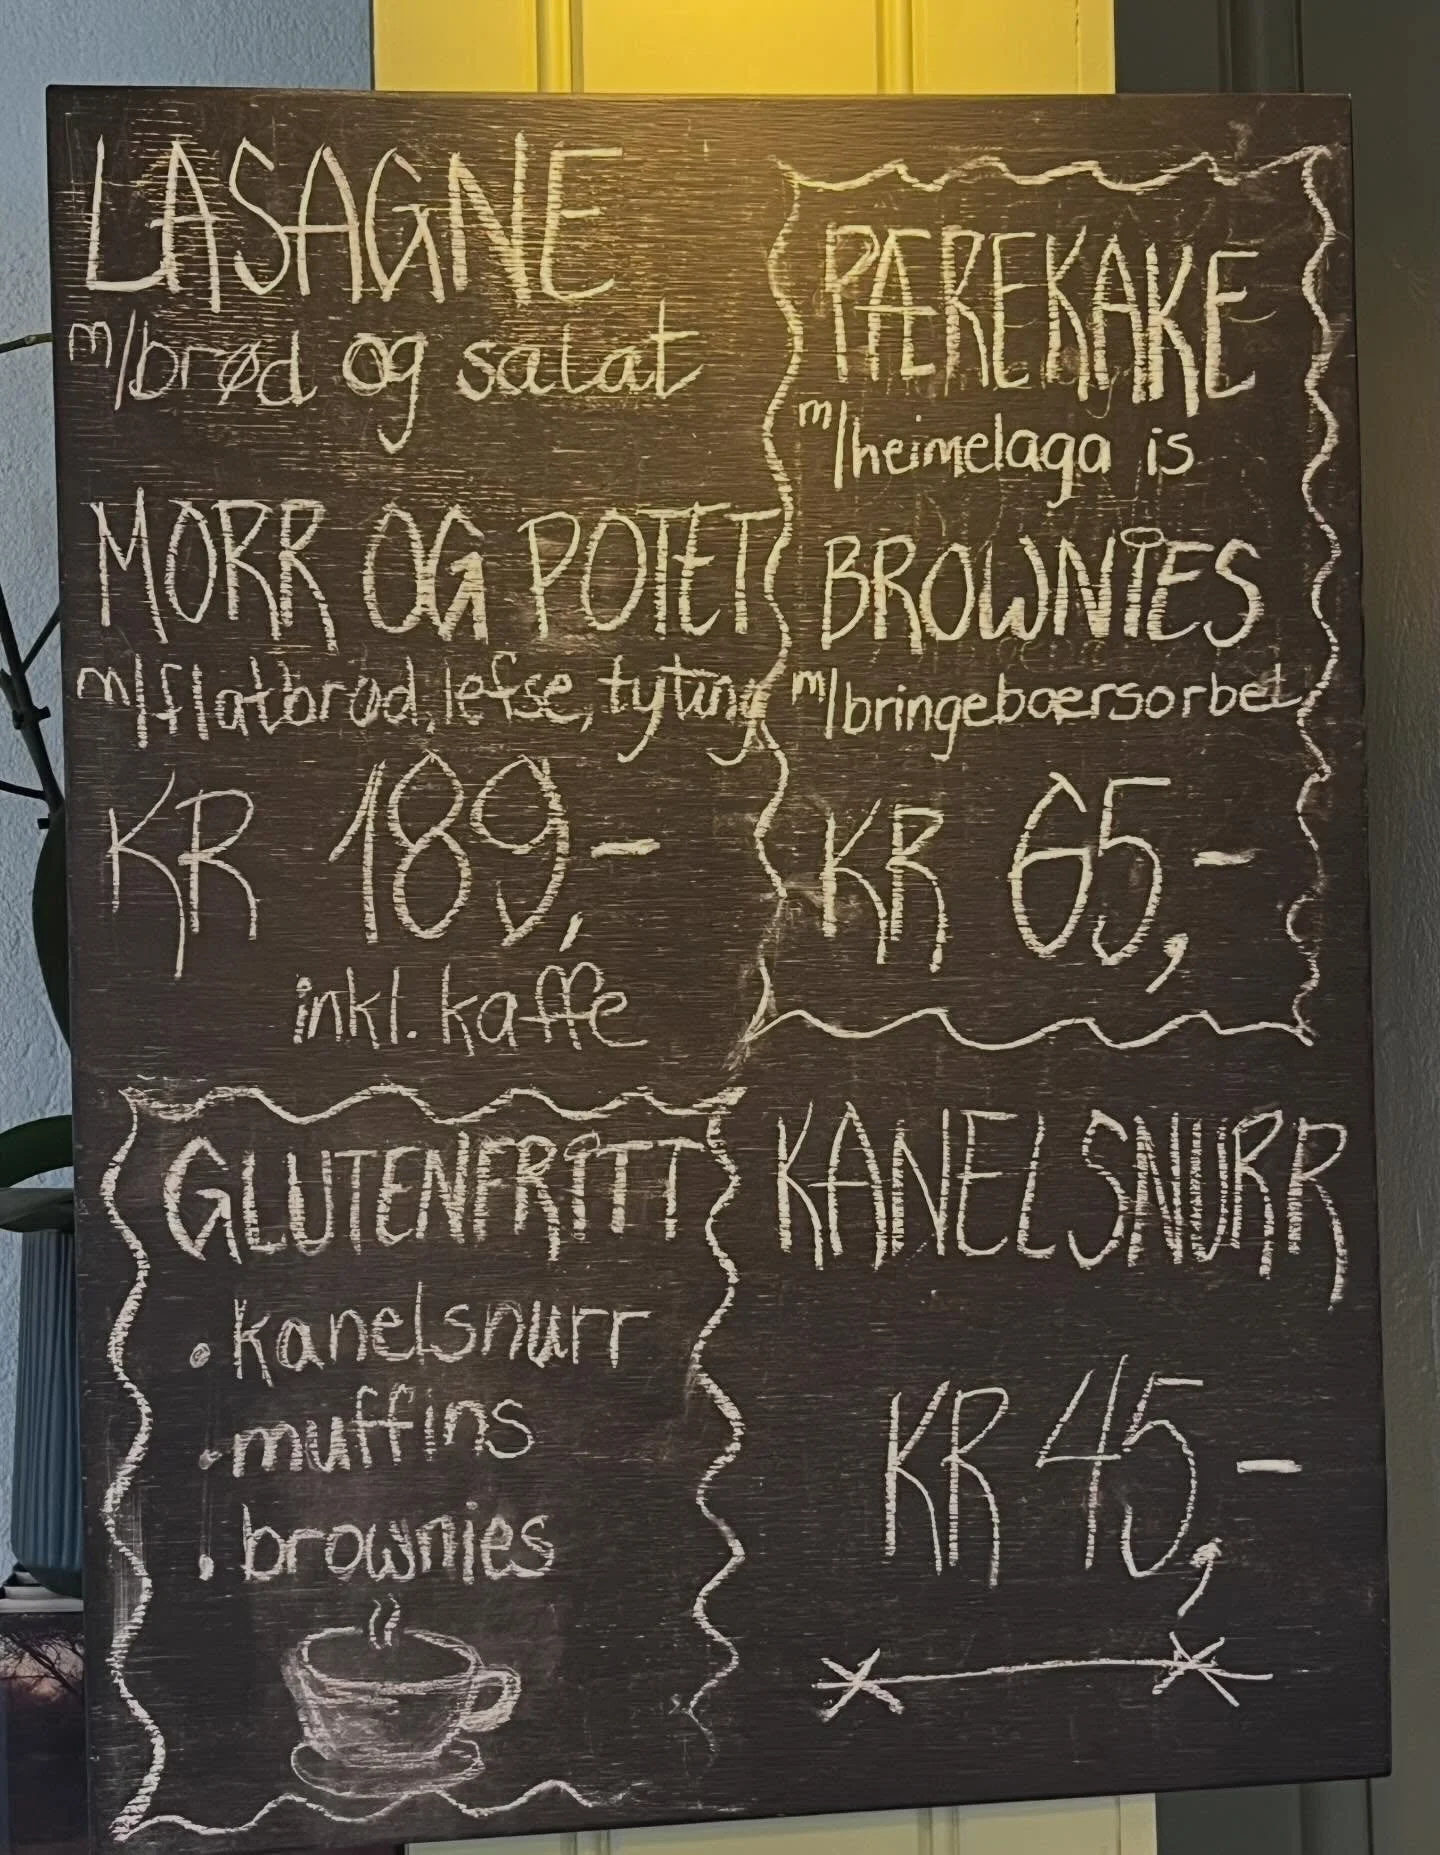 LASAGNE
m/brød og salat
MORR OG POTET
m/flatbrød, lefse, tyting
KR 189,-
inkl. kaffe
PÆREKAKE
m/heimelaga is
BROWNIES
m/bringebærsorbet
KR 65,-
GLUTENFRITT
. kanelsnurr
. muffins
. brownies
KANELSNURR
KR 45,-